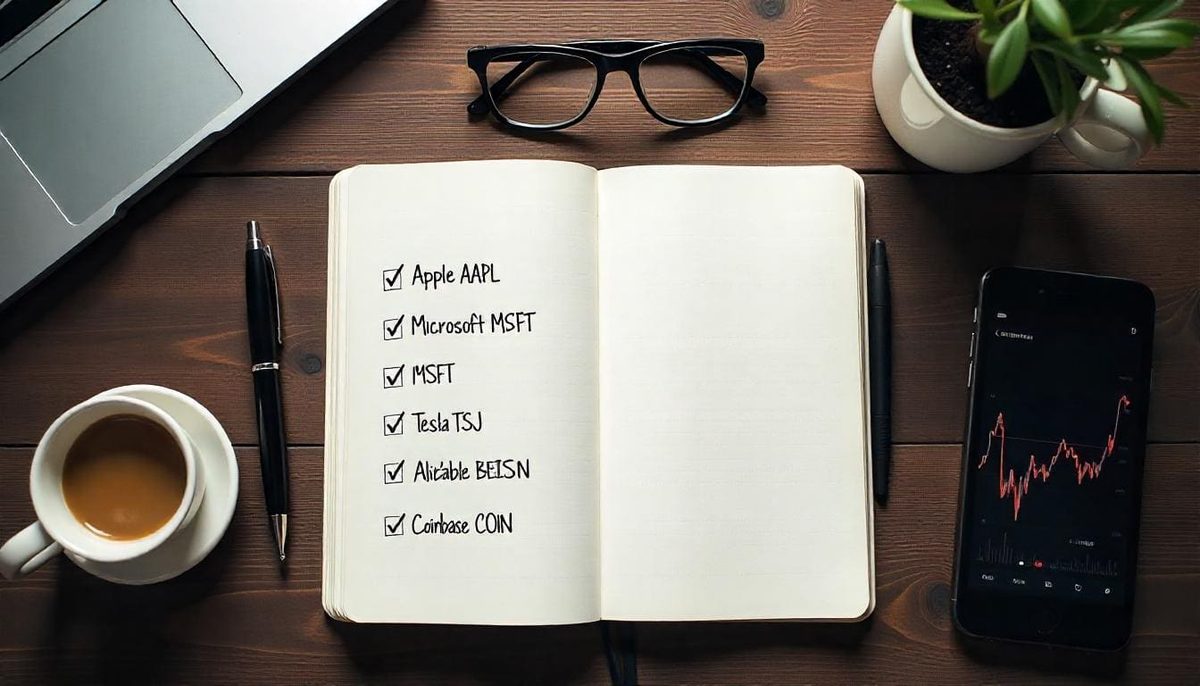 Apple AAPL
Microsoft MSFT
MSFT
Tesla TSJ
Coinbase COIN